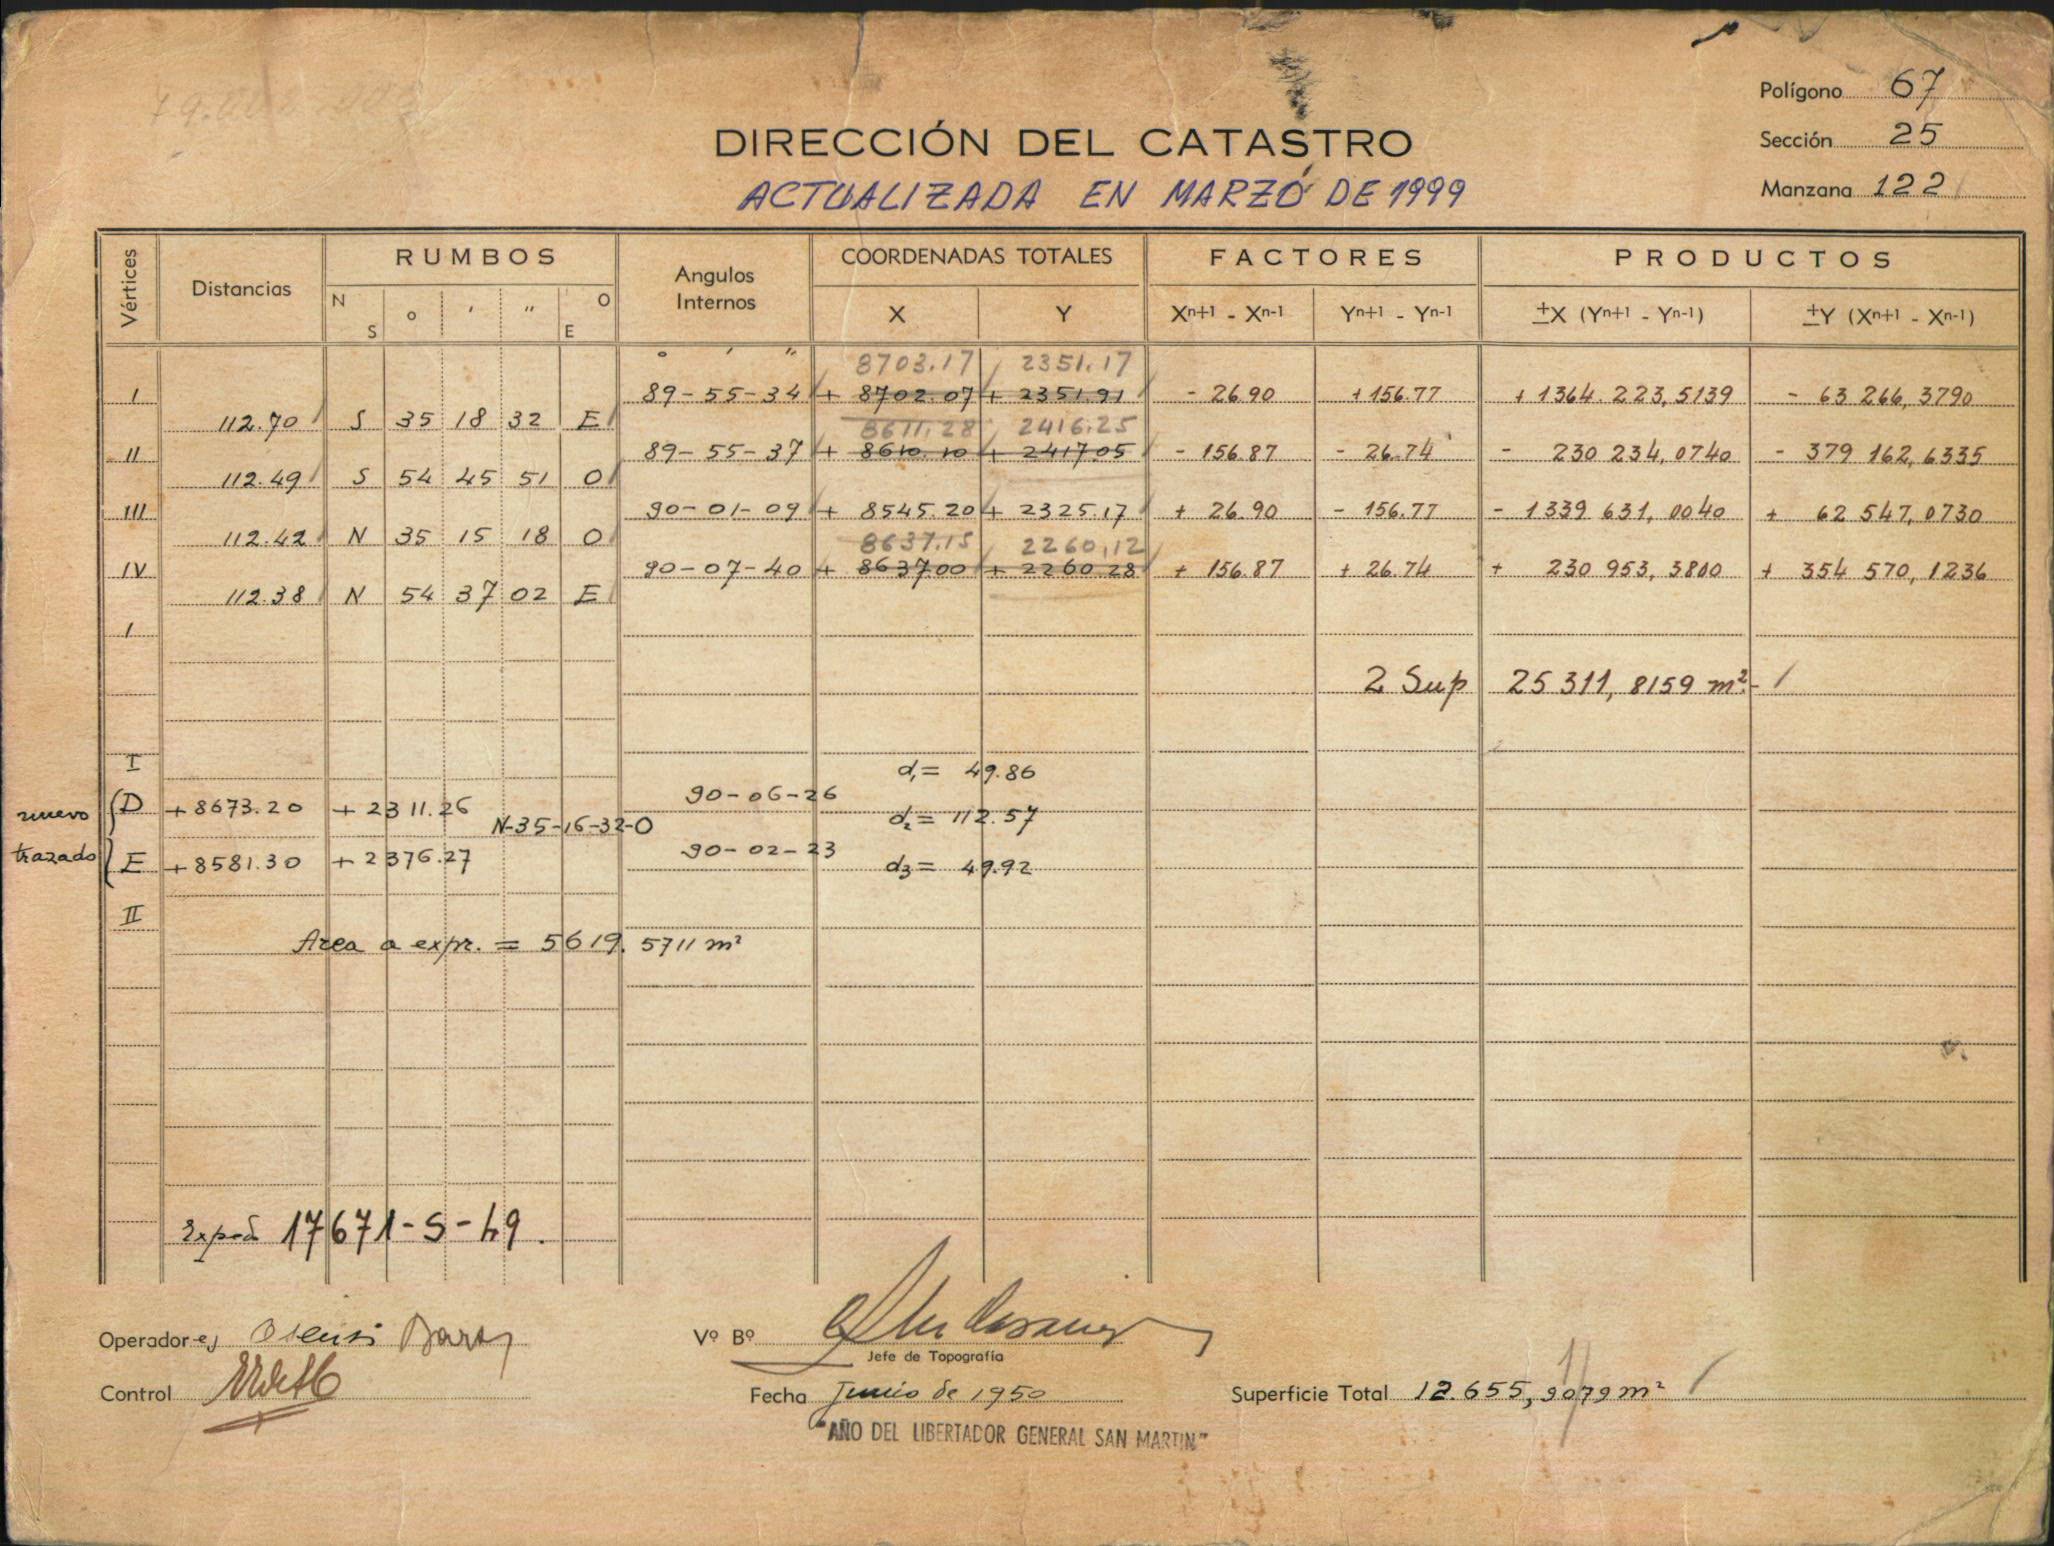 Polígono 67
DIRECCIÓN DEL CATASTRO
Sección 25
ACTUALIZADA EN MARZO DE 1999
Manzana 122
Vértices Distancias RUMBOS Angulos Internos COORDENADAS TOTALES FACTORES PRODUCTOS
N S ° ' " O E X Y Xn+1 - Xn-1 Yn+1 - Yn-1 ±X (Yn+1 - Yn-1) ±Y (Xn+1 - Xn-1)
° ' " 8703.17 2351.17
I 89-55-34 + 8702.07 + 2351.91 - 26.90 + 156.77 + 1364 223,5139 - 63 266,3790
112.70 S 35 18 32 E 8611.28 2416.25
II 89-55-37 + 8610.10 + 2417.05 - 156.87 - 26.74 - 230 234,0740 - 379 162,6335
112.49 S 54 45 51 O
III 90-01-09 + 8545.20 + 2325.17 + 26.90 - 156.77 - 1339 631,0040 + 62 547,0730
112.42 N 35 15 18 O 8637.15 2260,12
IV 90-07-40 + 8637.00 + 2260.28 + 156.87 + 26.74 + 230 953,3800 + 354 570,1236
112.38 N 54 37 02 E
I
2 Sup 25 311,8159 m²
I d1= 49.86
nuevo D +8673.20 +2311.26 90-06-26
N-35-16-32-O d2= 112.57
trazado E +8581.30 +2376.27 90-02-23 d3= 49.92
II
Area a expr. = 5619.5711 m²
Exped 17671-S-49.
Operador es Asensi
Vº Bº
Jefe de Topografía
Control
Fecha Junio de 1950
Superficie Total 12.655,9079 m²
"AÑO DEL LIBERTADOR GENERAL SAN MARTIN"